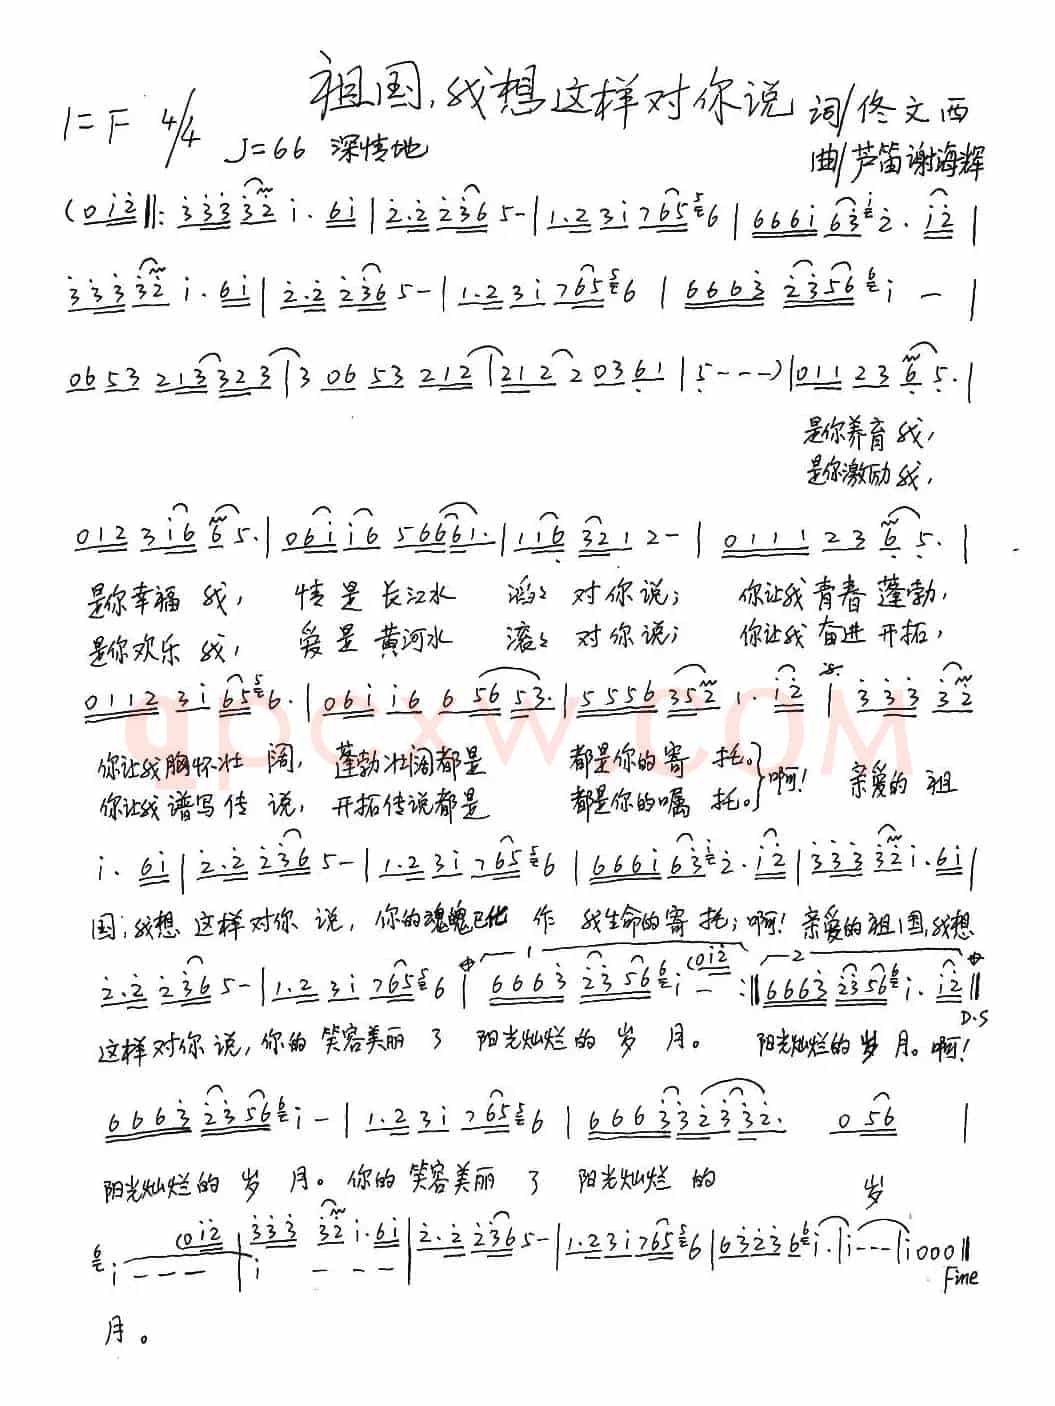 祖国,我想这样对你说
1=F 4/4
♩=66 深情地
词/佟文西
曲/芦笛 谢海辉
(0 i̇ 2̇ ‖: 3̇ 3̇ 3̇ 3̇ 2̇ i̇ · 6 i̇ | 2̇ · 2̇ 2̇ 3̇ 6 5 - | 1 · 2 3 i̇ 7 6 5 6 | 6 6 6 i̇ 6 3̇ 2̇ · i̇ 2̇ |
3̇ 3̇ 3̇ 3̇ 2̇ i̇ · 6 i̇ | 2̇ · 2̇ 2̇ 3̇ 6 5 - | 1 · 2 3 i̇ 7 6 5 6 | 6 6 6 3̇ 2̇ 3̇ 5 6 i̇ - |
0 6 5 3 2 1 3 3 2 3 | 3 0 6 5 3 2 1 2 | 2 1 2 2 0 3 6̣ 1 | 5̣ - - - ) | 0 1 1 2 3 6̣ 5̣ · |
是你养育 我,
是你激励 我,
0 1 2 3 i̇ 6 6 5 · | 0 6 i̇ i̇ 6 5 6 6 6 1 · | 1 1 6̣ 3 2 1 2 - | 0 1 1 1 2 3 6̣ 5̣ · |
是你幸福 我, 情是长江水 滔滔 对你说; 你让我青春蓬勃,
是你欢乐 我, 爱是黄河水 滚滚 对你说; 你让我奋进开拓,
0 1 1 2 3 i̇ 6 5 6 · | 0 6 i̇ i̇ 6 6 5 6 5 3 · | 5 5 5 6 3 5 2 1 · i̇ 2̇ | 3̇ 3̇ 3̇ 3̇ 2̇
qpcxw.COM
你让我胸怀壮 阔, 蓬勃壮阔都是 都是你的寄 托。} 啊! 亲爱的 祖
你让我谱写传 说, 开拓传说都是 都是你的嘱 托。
i̇ · 6 i̇ | 2̇ · 2̇ 2̇ 3̇ 6 5 - | 1 · 2 3 i̇ 7 6 5 6 | 6 6 6 i̇ 6 3̇ 2̇ · i̇ 2̇ | 3̇ 3̇ 3̇ 3̇ 2̇ i̇ · 6 i̇ |
国,我想 这样对你 说, 你的魂魄已化 作 我生命的寄 托; 啊! 亲爱的祖国,我想
2̇ · 2̇ 2̇ 3̇ 6 5 - | 1 · 2 3 i̇ 7 6 5 6 | 1 6 6 6 3̇ 2̇ 3̇ 5 6 i̇ - (0 i̇ 2̇ :‖ 2 6 6 6 3̇ 2̇ 3̇ 5 6 i̇ · i̇ 2̇ ‖
D.S
这样对你 说, 你的 笑容美丽 了 阳光灿烂的 岁 月。 阳光灿烂的 岁 月。啊!
6 6 6 3̇ 2̇ 3̇ 5 6 i̇ - | 1 · 2 3 i̇ 7 6 5 6 | 6 6 6 3̇ 3̇ 2̇ 3̇ 3̇ 2̇ · 0 5 6 |
阳光灿烂的 岁 月。 你的 笑容美丽 了 阳光灿烂 的 岁
i̇ - - - (0 i̇ 2̇ | 3̇ 3̇ 3̇ 3̇ 2̇ i̇ · 6 i̇ | 2̇ · 2̇ 2̇ 3̇ 6 5 - | 1 · 2 3 i̇ 7 6 5 6 | 6 3̇ 2̇ 3̇ 6 i̇ · | i̇ - - - | i̇ 0 0 0 ‖
i̇ - - -
Fine
月。